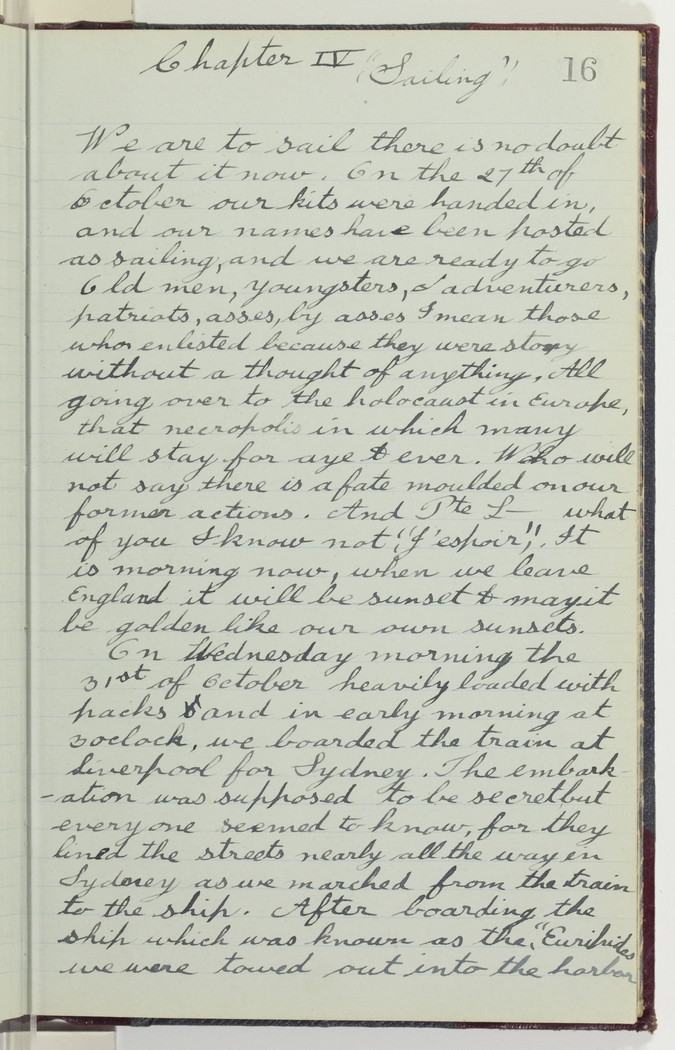 Chapter IV "Sailing" 16
We are to sail there is no doubt
about it now. On the 27th of
October our kits were handed in,
and our names have been posted
as sailing, and we are ready to go
Old men, youngsters, & adventurers,
patriots, asses, by asses I mean those
who enlisted because they were stony
without a thought of anything. All
going over to the holocaust in Europe,
that necropolis in which many
will stay for aye & ever. Who will
not say there is a fate moulded on our
former actions. And Pte L— what
of you I know not "J'espoir". It
is morning now, when we leave
England it will be sunset & may it
be golden like our own sunsets.
On Wednesday morning the
31st of October heavily loaded with
packs and in early morning at
3oclock, we boarded the train at
Liverpool for Sydney. The embark-
-ation was supposed to be secret but
everyone seemed to know, for they
lined the streets nearly all the way in
Sydney as we marched from the train
to the ship. After boarding the
ship which was known as the, "Euripides
we were towed out into the harbor